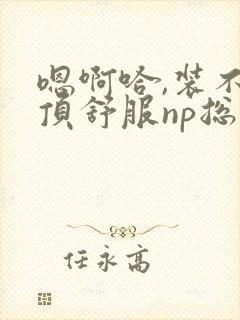 嗯啊哈,装不
顶舒服np总
任永高